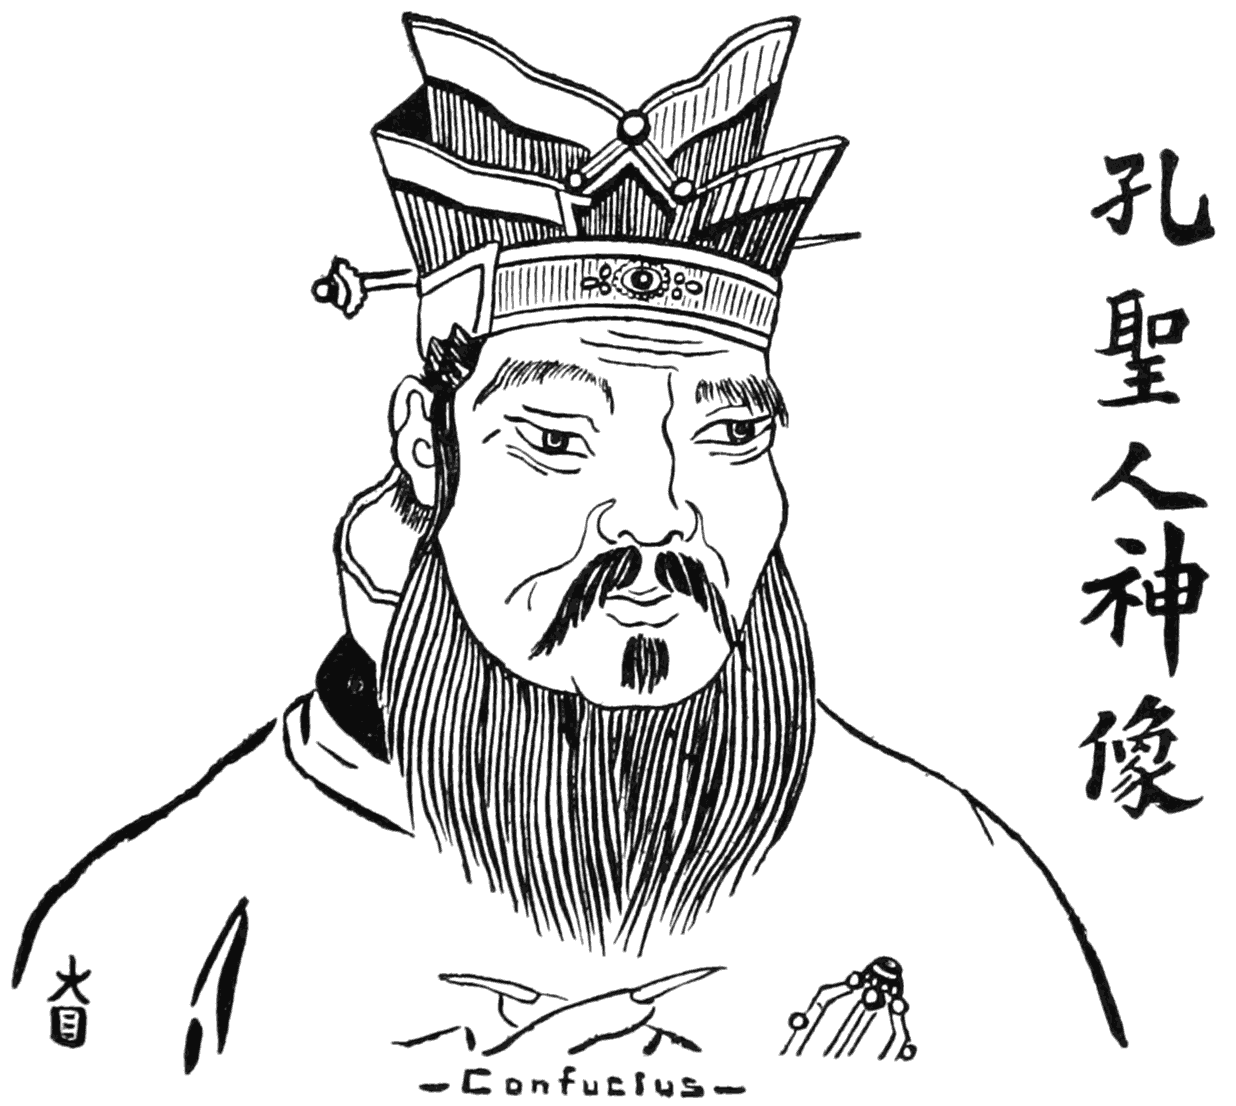 孔聖人神像
大目
-Confucius-